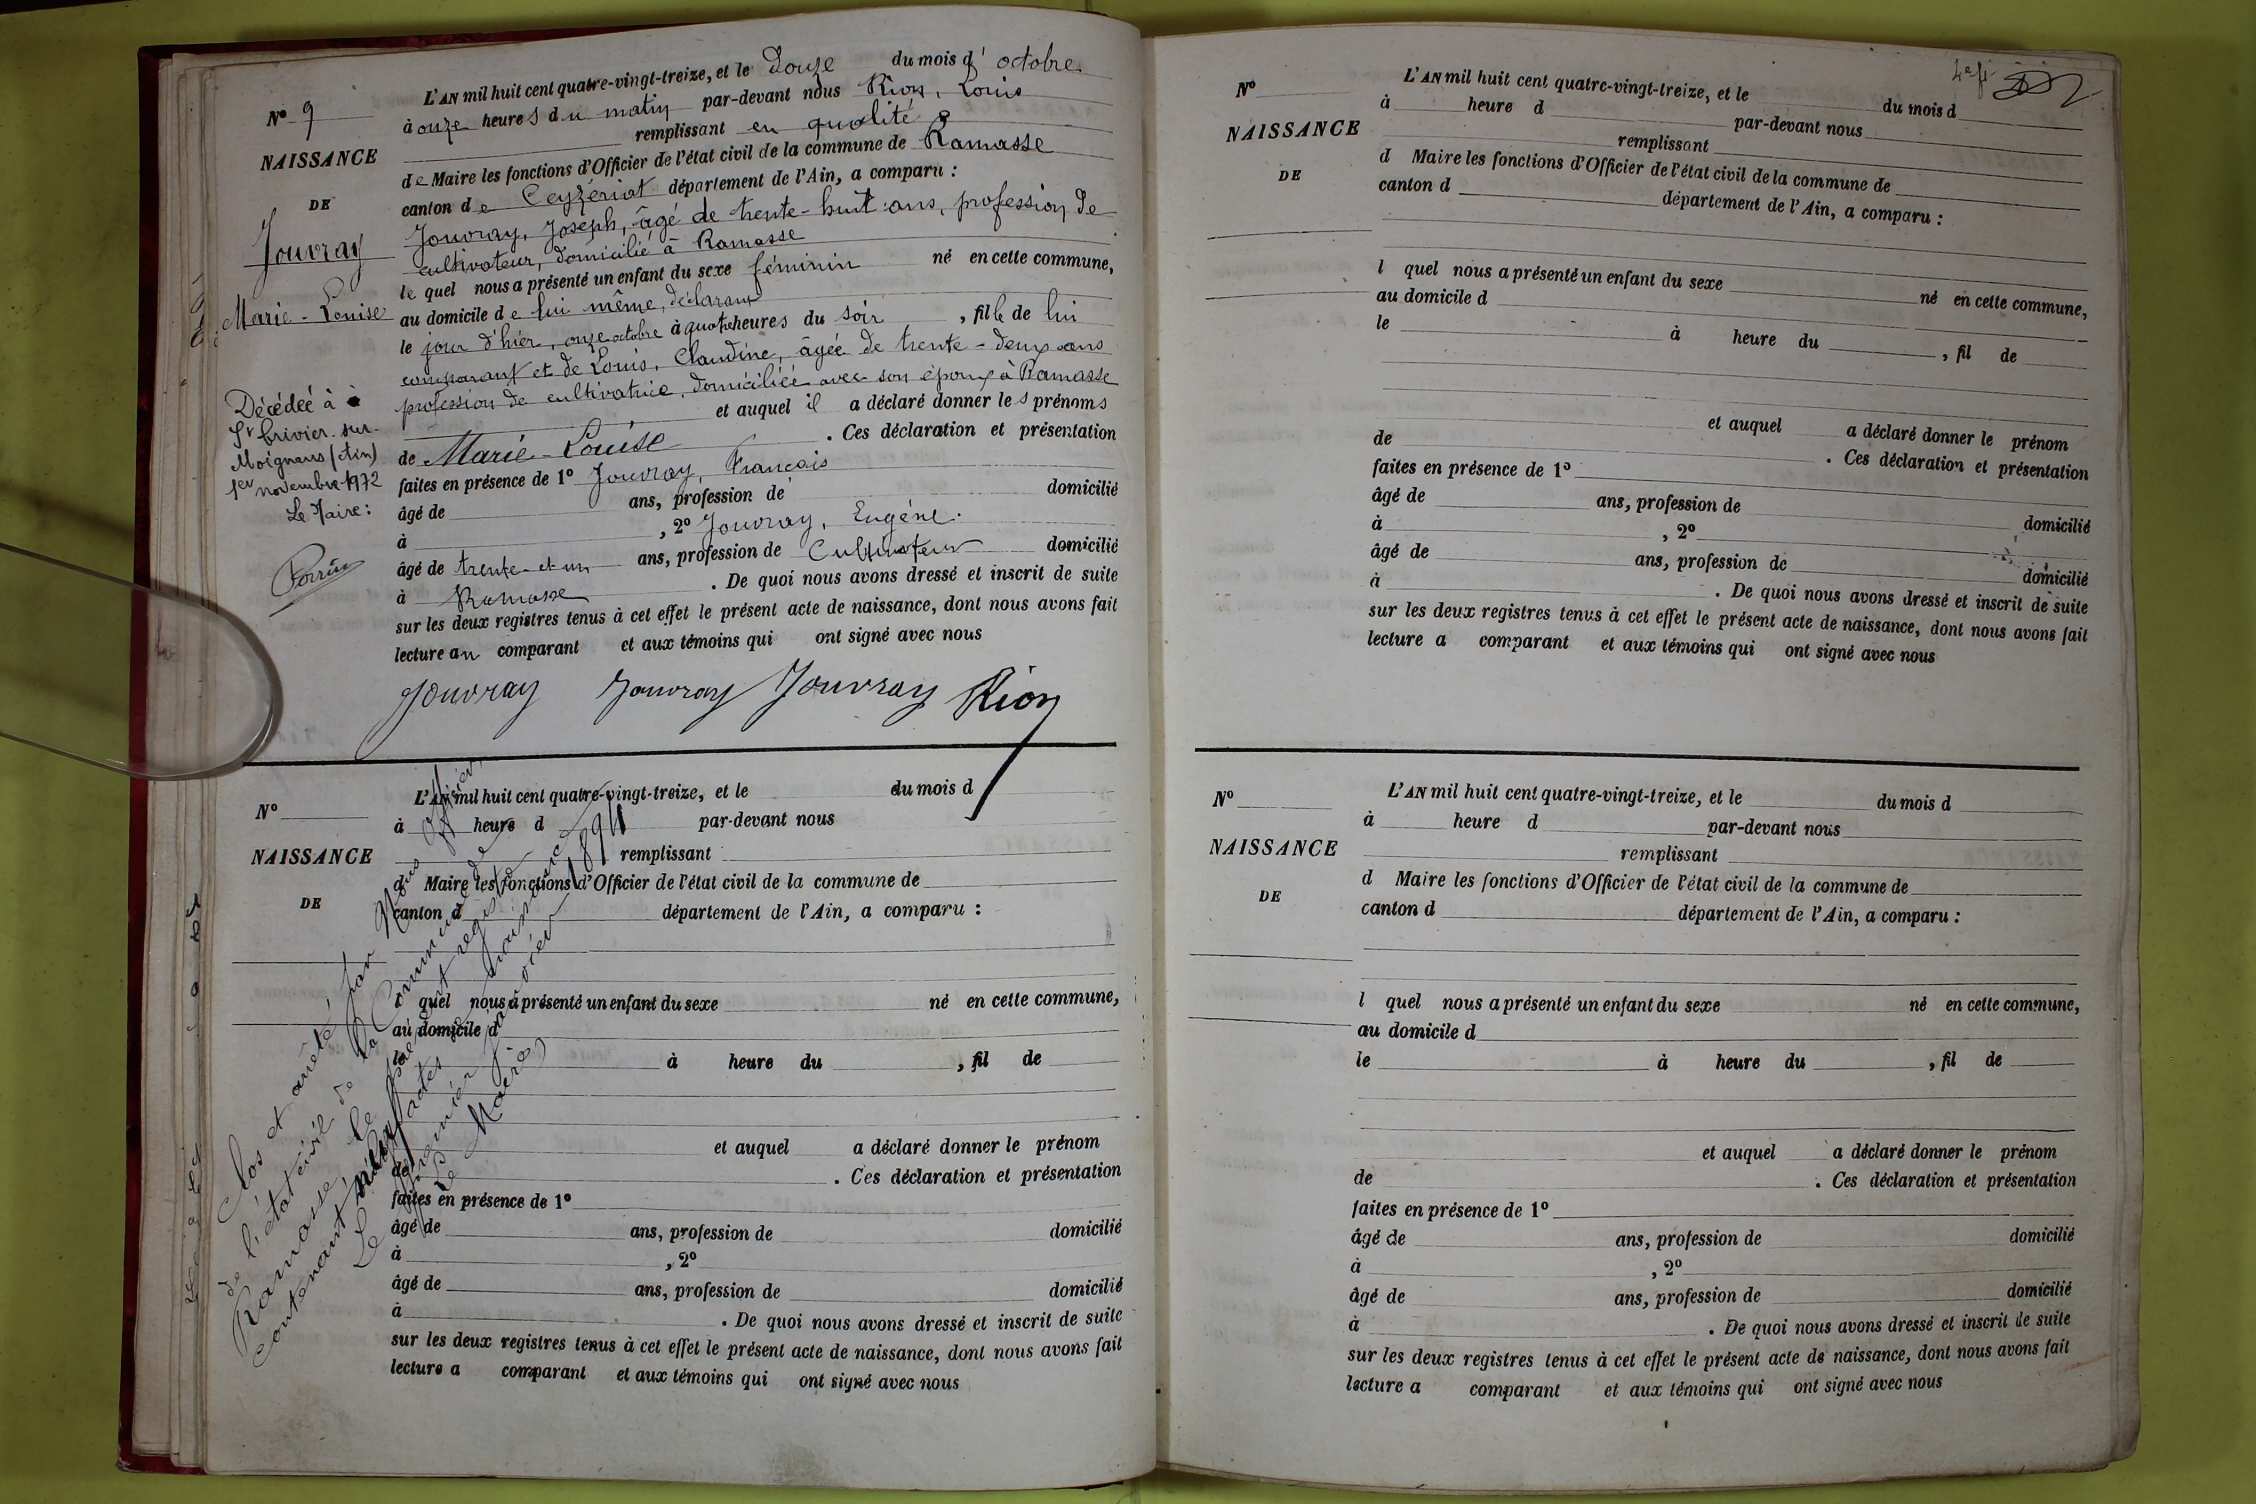 N° 9
NAISSANCE
DE
Jouvray
Marie-Louise
Décédée à
St Trivier-sur-
Moignans (Ain)
1er novembre 1972
Le Maire:
Perrin
L'AN mil huit cent quatre-vingt-treize, et le douze du mois d'octobre
à onze heures du matin par-devant nous Rion, Louis
remplissant en qualité
de Maire les fonctions d'Officier de l'état civil de la commune de Ramasse
canton de Ceyzériat département de l'Ain, a comparu :
Jouvray, Joseph, âgé de trente-huit ans, profession de
cultivateur, domicilié à Ramasse
lequel nous a présenté un enfant du sexe féminin né en cette commune,
au domicile de lui même, déclarant
le jour d'hier, onze octobre à quatre heures du soir , fille de lui
comparant et de Louis, Claudine, âgée de trente-deux ans
profession de cultivatrice, domiciliée avec son époux à Ramasse
et auquel il a déclaré donner les prénoms
de Marie-Louise . Ces déclaration et présentation
faites en présence de 1° Jouvray, Francois
âgé de ans, profession de domicilié
à , 2° Jouvray, Eugène.
âgé de trente-et-un ans, profession de Cultivateur domicilié
à Ramasse . De quoi nous avons dressé et inscrit de suite
sur les deux registres tenus à cet effet le présent acte de naissance, dont nous avons fait
lecture au comparant et aux témoins qui ont signé avec nous
Jouvray Jouvray Jouvray Rion
N°
NAISSANCE
DE
L'AN mil huit cent quatre-vingt-treize, et le du mois d
à heure d par-devant nous
remplissant
d Maire les fonctions d'Officier de l'état civil de la commune de
canton d département de l'Ain, a comparu :
l quel nous a présenté un enfant du sexe né en cette commune,
au domicile d
le à heure du , fil de
et auquel a déclaré donner le prénom
de . Ces déclaration et présentation
faites en présence de 1°
âgé de ans, profession de domicilié
à , 2°
âgé de ans, profession de domicilié
à . De quoi nous avons dressé et inscrit de suite
sur les deux registres tenus à cet effet le présent acte de naissance, dont nous avons fait
lecture a comparant et aux témoins qui ont signé avec nous
Clos et arrêté par Nous officier
de l'état civil de la Commune de
Ramasse, le présent registre
contenant neuf actes de naissance
Le premier janvier 1894
Le Maire,
N°
NAISSANCE
DE
L'AN mil huit cent quatre-vingt-treize, et le du mois d
à heure d par-devant nous
remplissant
d Maire les fonctions d'Officier de l'état civil de la commune de
canton d département de l'Ain, a comparu :
l quel nous a présenté un enfant du sexe né en cette commune,
au domicile d
le à heure du , fil de
et auquel a déclaré donner le prénom
de . Ces déclaration et présentation
faites en présence de 1°
âgé de ans, profession de domicilié
à , 2°
âgé de ans, profession de domicilié
à . De quoi nous avons dressé et inscrit de suite
sur les deux registres tenus à cet effet le présent acte de naissance, dont nous avons fait
lecture a comparant et aux témoins qui ont signé avec nous
N°
NAISSANCE
DE
L'AN mil huit cent quatre-vingt-treize, et le du mois d
à heure d par-devant nous
remplissant
d Maire les fonctions d'Officier de l'état civil de la commune de
canton d département de l'Ain, a comparu :
l quel nous a présenté un enfant du sexe né en cette commune,
au domicile d
le à heure du , fil de
et auquel a déclaré donner le prénom
de . Ces déclaration et présentation
faites en présence de 1°
âgé de ans, profession de domicilié
à , 2°
âgé de ans, profession de domicilié
à . De quoi nous avons dressé et inscrit de suite
sur les deux registres tenus à cet effet le présent acte de naissance, dont nous avons fait
lecture a comparant et aux témoins qui ont signé avec nous